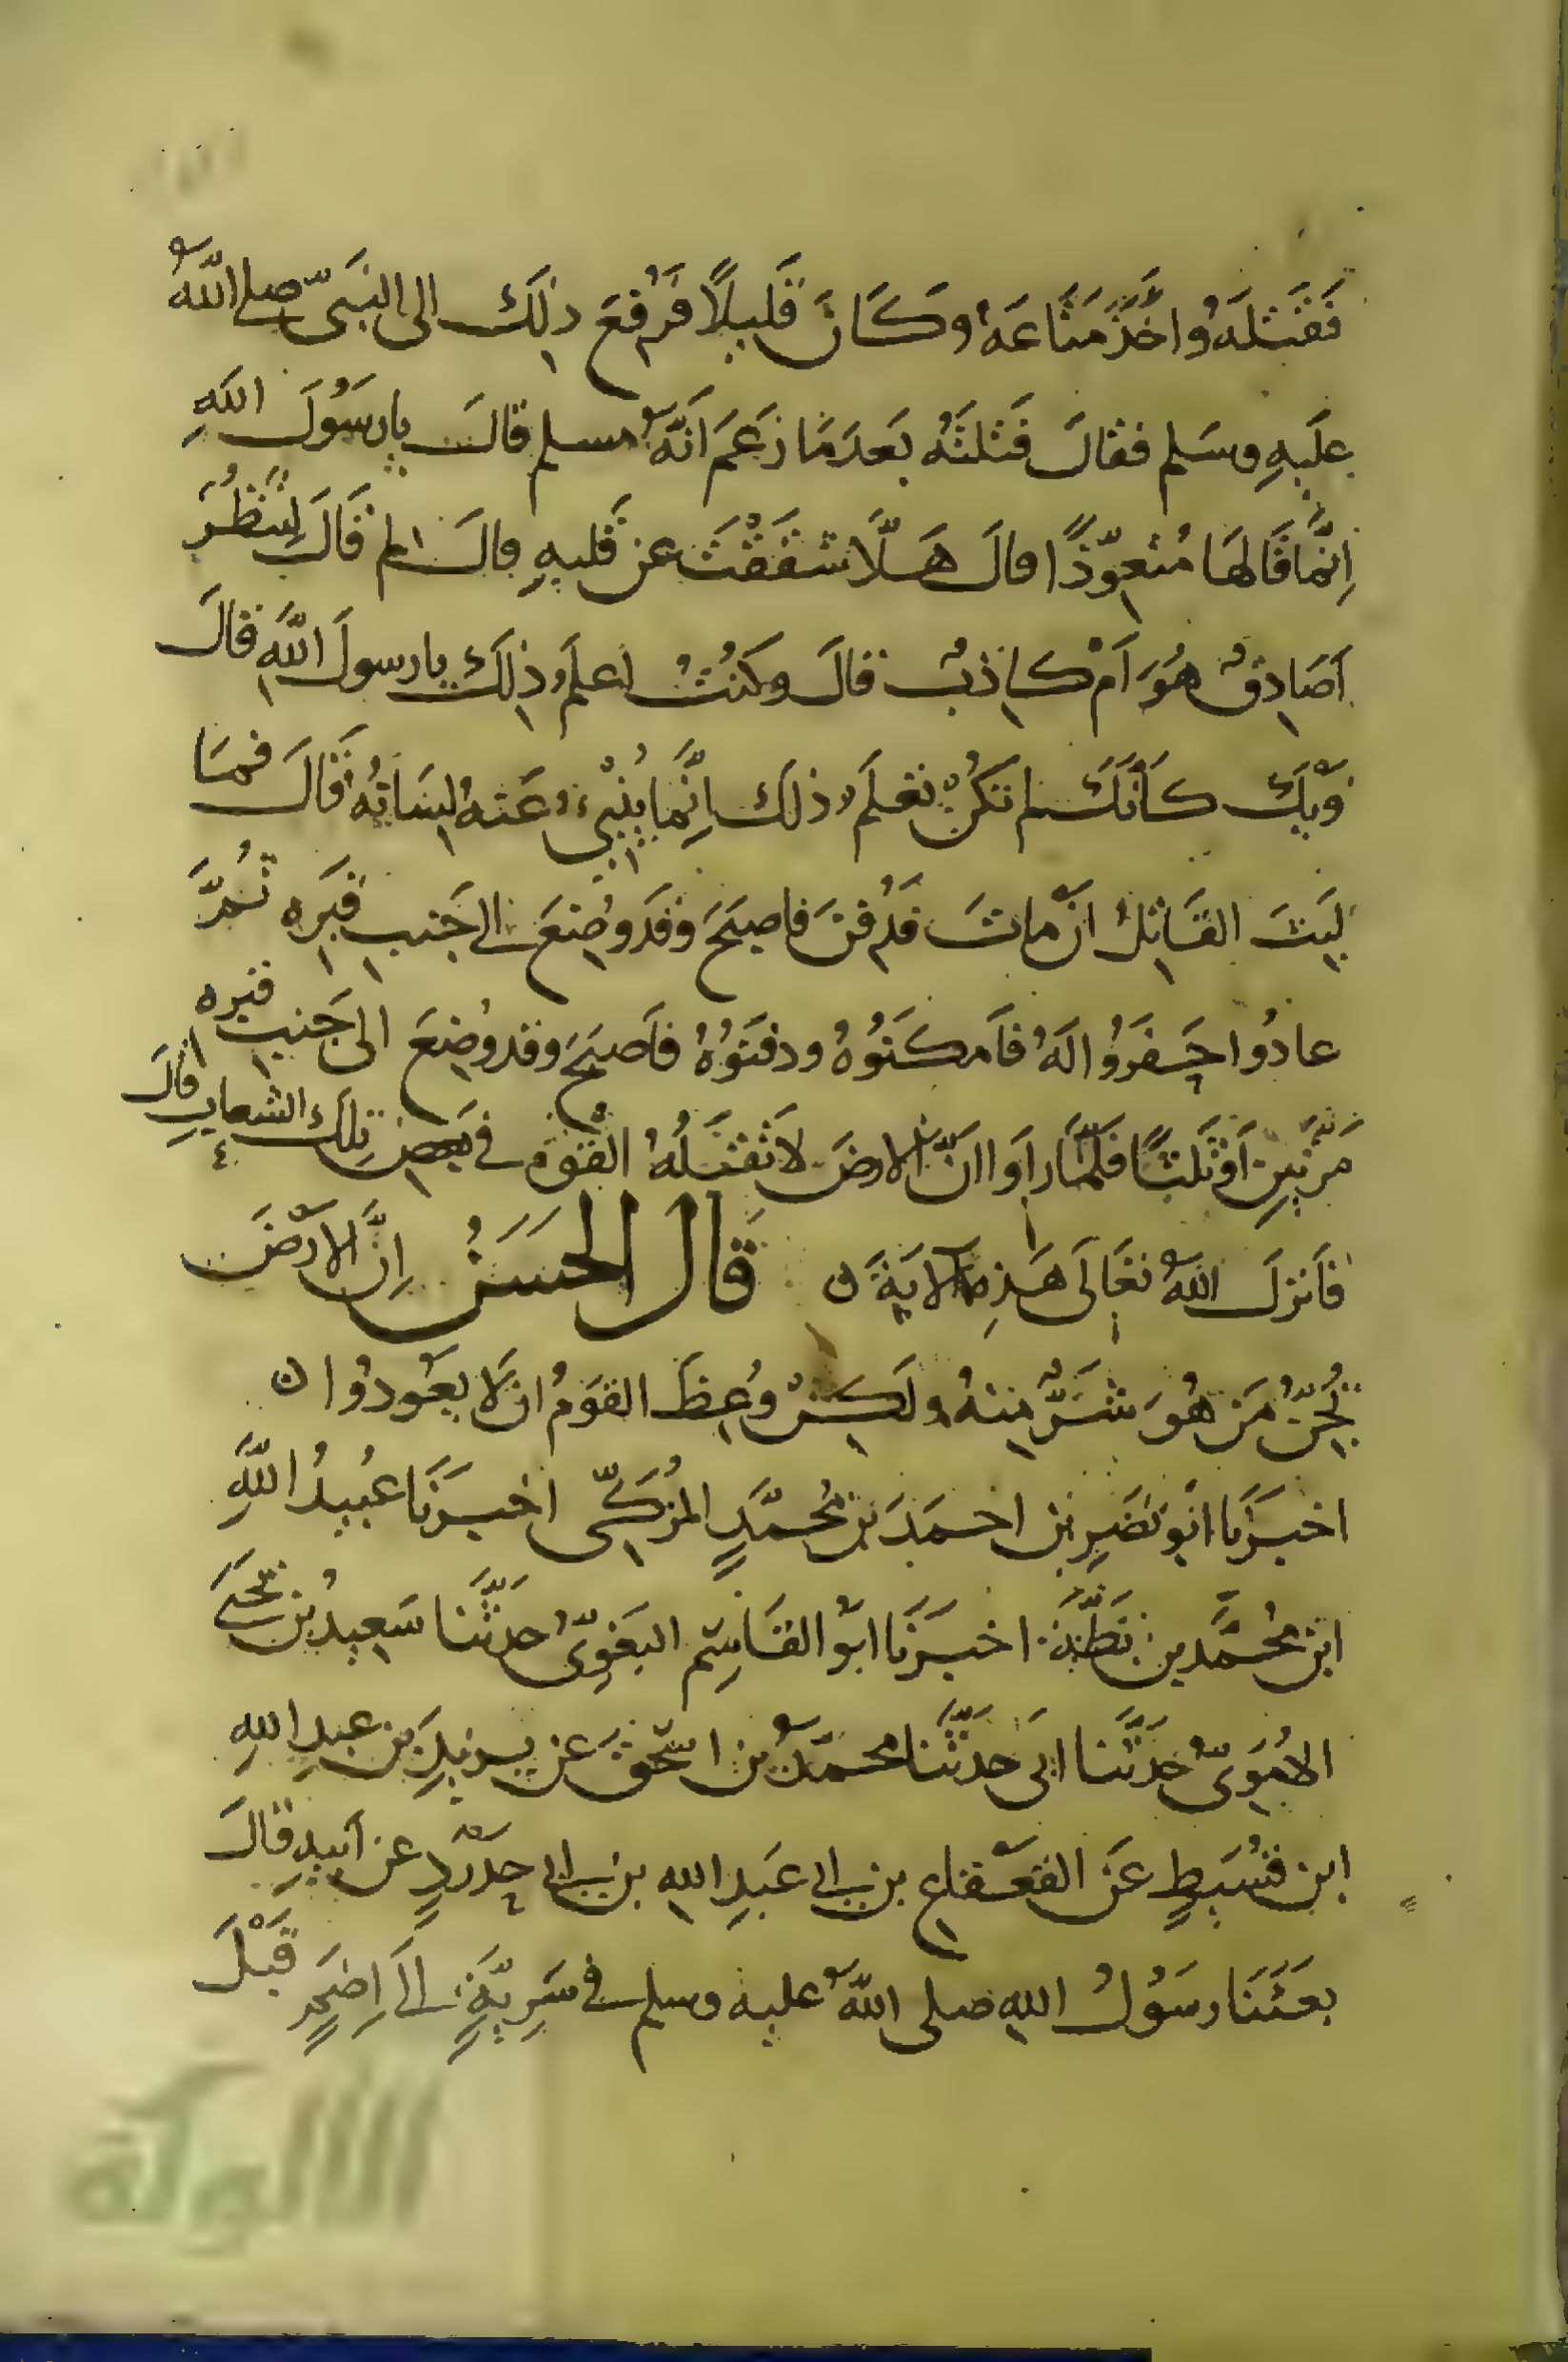 فَقَتَلَهُ وَاخَذَ مَتَاعَهُ وَكَانَ قَلِيلًا فَرُفِعَ ذلِكَ الى النَبىّ صلى اللّٰهُ
عَلَيهِ وسَلم فقالَ قَتَلتَهُ بَعدَمَا زَعَمَ انَّهُ مسلم قالَ يا رسُولَ اللهِ
اِنَّما قَالهَا مُتعوِّذًا قالَ هَلَّا شَقَقْتَ عن قَلبهِ قالَ لم قَالَ لِتَنْظُرَ
اَصَادِقٌ هُوَ اَمْ كاذِبٌ قالَ وكُنتُ اَعلَمُ ذلِكَ يا رسولَ اللَّهِ قالَ
وَيْكَ كَأَنَّكَ لم تَكُنْ تعْلَمُ ذلكَ اِنَّما يُنْبِئُ عَنهُ لِسَانُهُ قَالَ فمَا
لَبِثَ القَاتِلُ انْ ماتَ فَدُفِنَ فاصبَحَ وقَد وُضِعَ الى جَنبِ قَبرِهِ ثُمَّ
عادُوا حَفَرُوا لَهُ فَاَمكَنُوهُ ودفَنُوهُ فاَصبَحَ وقد وُضِعَ الى جَنبِ قبره
مَرَّتَينِ اَوْ ثَلثًا فَلَمَّا رَاَوا انَّ الارضَ لا تَقْبَلُهُ القَوْم فى بَعضِ تِلكَ الشعابِ قالَ
فَاَنزلَ اللهُ تعَالَى هَذِهِ الايَةَ ن قَال الحَسَنُ اِنَّ الاَرضَ
تُجِنُّ مَن هُوَ شَرٌّ مِنهُ ولَكِنْ وُعِظَ القَوْمُ انْ لَا يَعُودوُا ن
اخبَرَنَا ابُو نَصرِ بن احمَدَ بن مُحمَّدٍ المُزَكّى اخبَرَنَا عُبَيدُ اللَّهِ
ابن مُحمَّد بن بَطَّةَ اخبَرَنَا ابُو القَاسِم البَغَوِىُّ حدَّثَنا سَعِيدُ بن يَحيَى
الاُمَوِىُّ حَدَّثَنا ابى حدَّثَنا محمّدُ بن اسْحٰق عن يزيدَ بن عبدِ اللهِ
ابن قُسَيطٍ عَن القَعْقاعِ بن ابى عَبدِ اللهِ بن ابى حَدْرَدٍ عن اَبيهِ قالَ
بعَثَنَا رسُولُ اللهِ صلى اللّٰهُ عليه وسلم فى سَرِيَّةٍ الى اِضَمٍ قَبْلَ
الألوكة